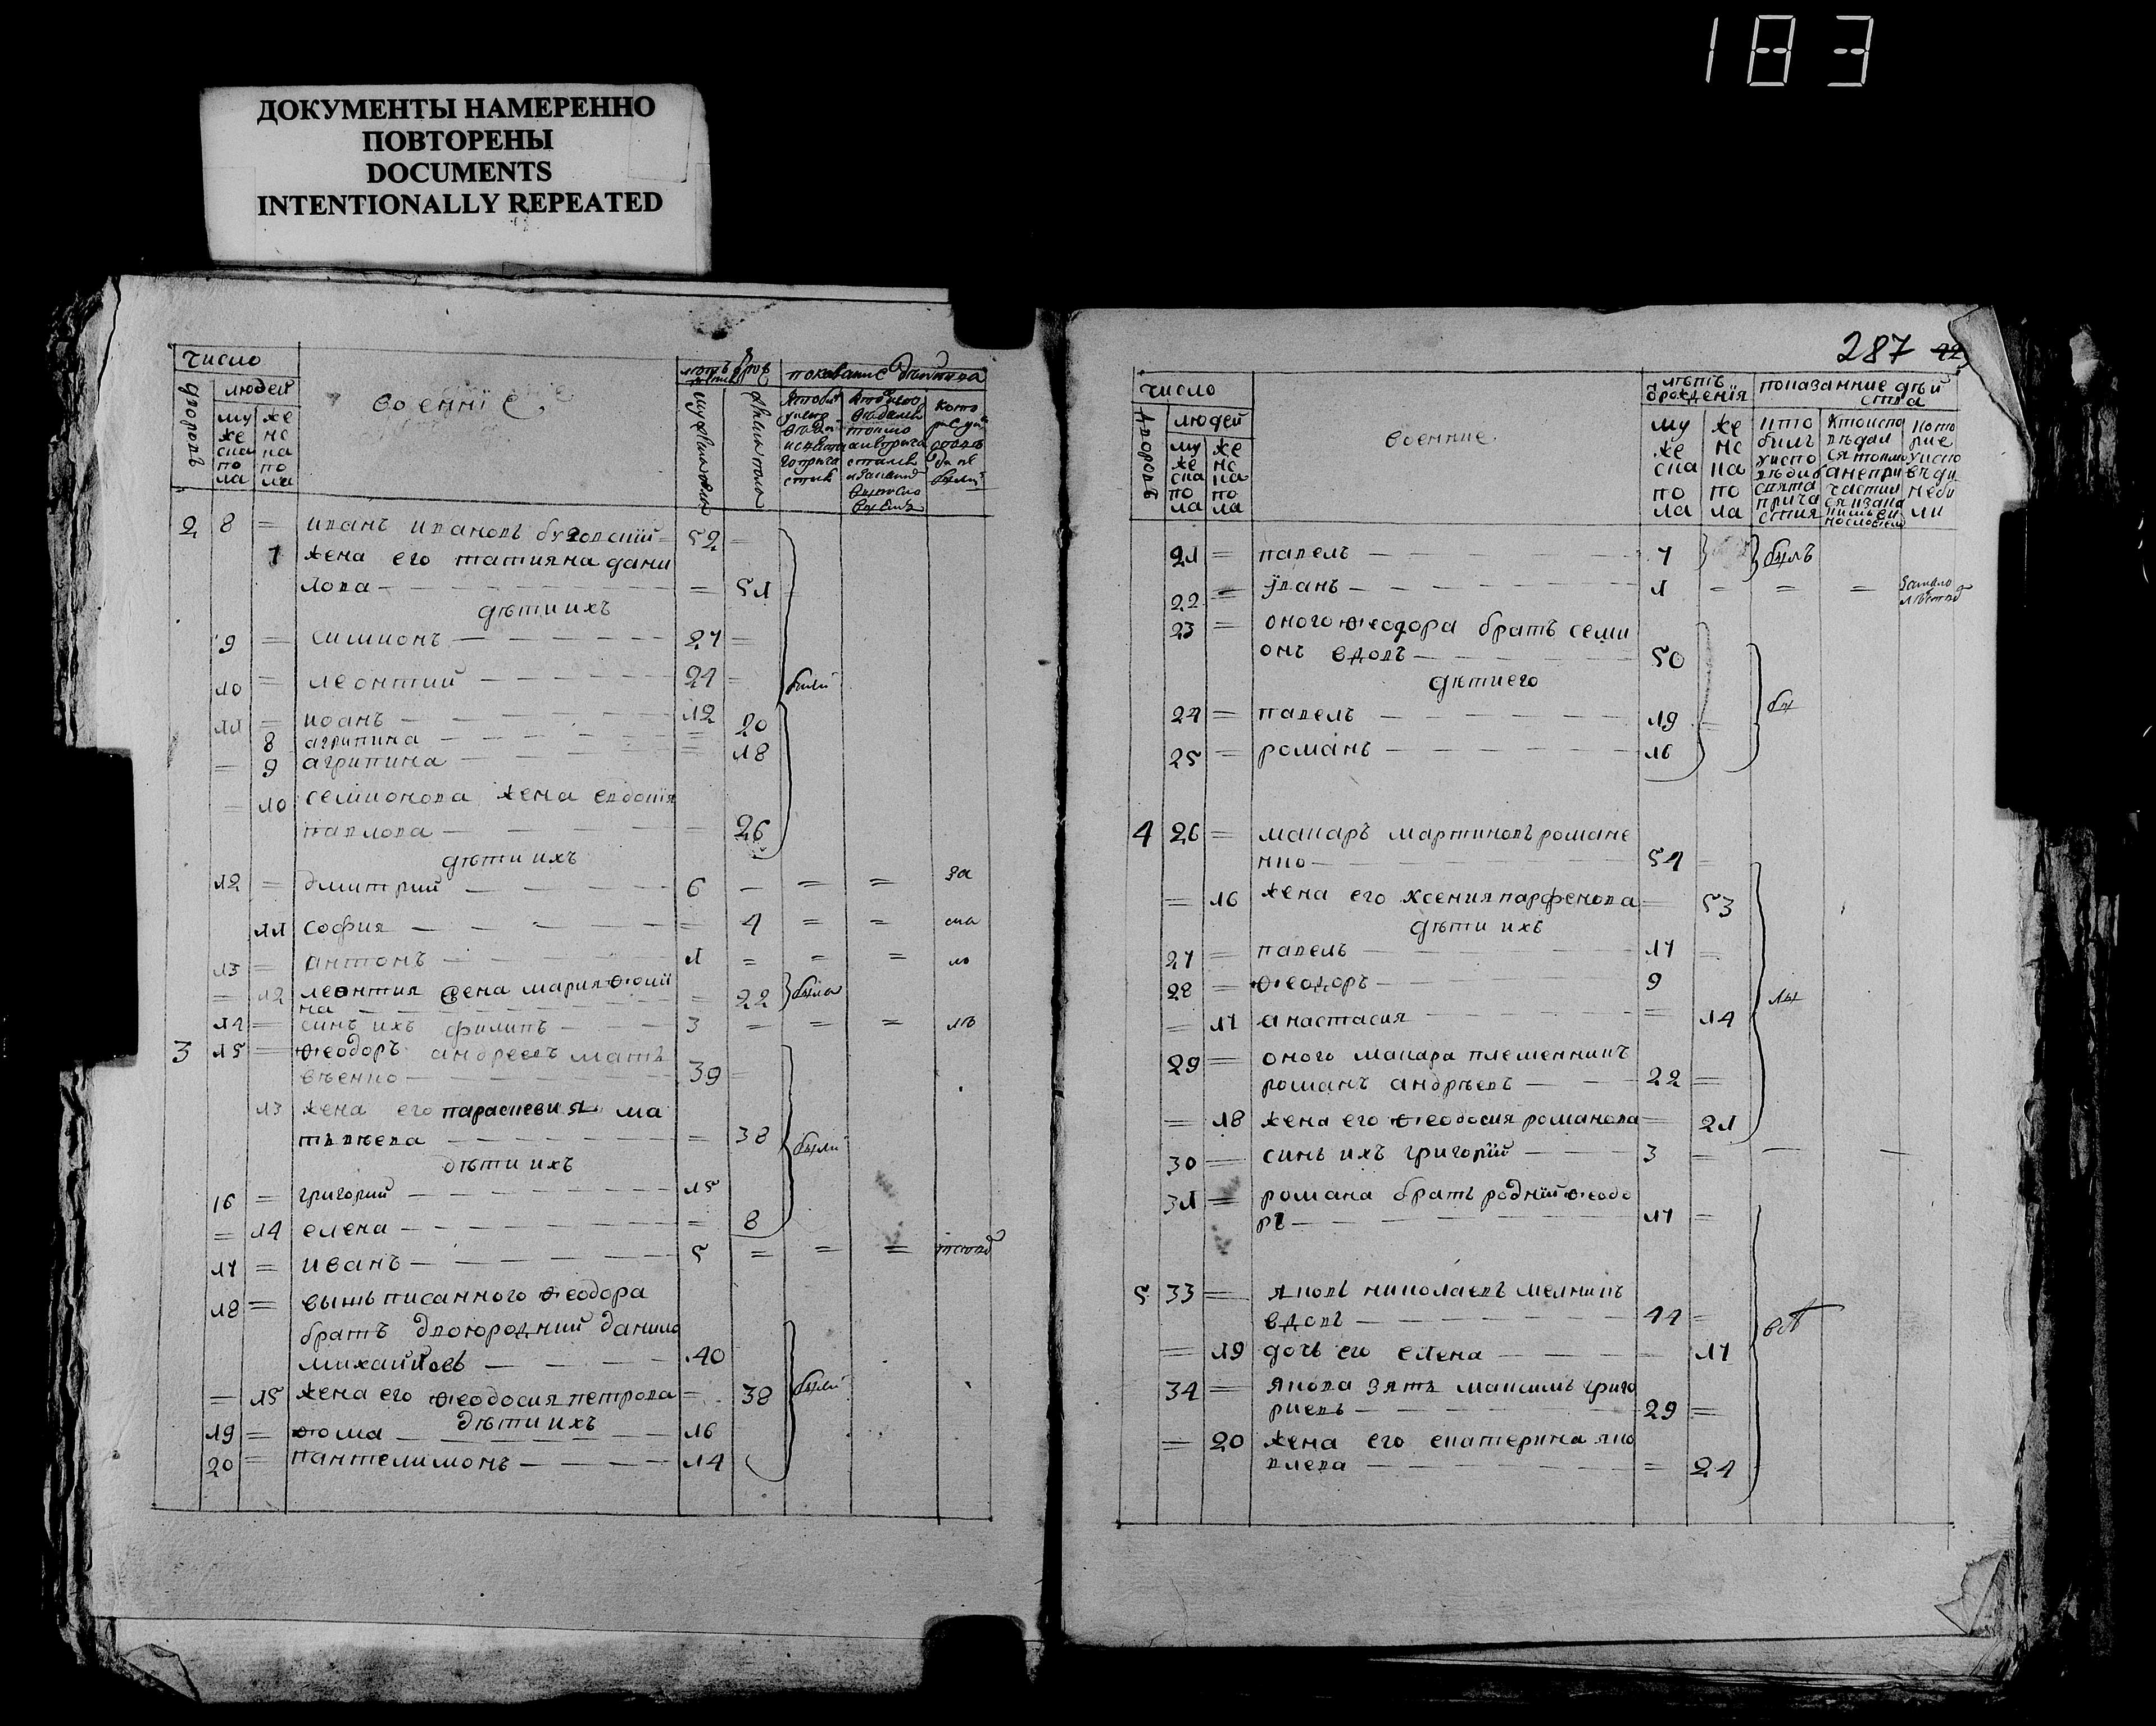 183
ДОКУМЕНТЫ НАМЕРЕННО
ПОВТОРЕНЫ
DOCUMENTS
INTENTIONALLY REPEATED
число
дворовъ
людей
му же ска по ла
же нс ка по ла
военніе
показание действа
2 8 = иванъ ивановъ 52 =
7 жена его татияна дани
лова = 51
дѣти ихъ
9 = симионъ 27 =
10 = леонтий 21 =
11 = иоанъ 12
8 агрипина = 20
= 9 агрипина = 18
были
= 10 семионова жена евдокія
павлова = 26
дѣти ихъ
12 = дмитрий 6 = = за
11 софия = 4 = = ма
13 = антонъ 1 = = = ло
= 12 леонтия жена мария фоми
на = 22 была
14 = синъ ихъ филипъ 3 = = = лѣ
3 15 = феодоръ андреевъ матв
веенко 39 =
13 жена его параскевия ма
твѣева = 38 были
дѣти ихъ
16 = григорий 15
= 14 елена = 8
17 = иванъ 5 = = = тствд
18 = вышъ писанного феодора
братъ двоюродний данило
михайловъ 40
= 15 жена его феодосия петрова = 38 были
дѣти ихъ
19 = фома 16
20 = пантелимонъ 14
287
число
дворовъ
людей
му же ска по ла
же нс ка по ла
военние
лѣтъ
ѿрождения
показанние дѣй
ства
му же ска по ла
же нс ка по ла
21 = павелъ 7 былъ
22 = іванъ 1 = = = замало
лѣтствд
23 = оного феодора братъ семи
онъ вдовъ 50
дѣти его
24 = павелъ 19 =
25 = романъ 16
бы
4 26 = макаръ мартиновъ романе
нко 54 =
= 16 жена его ксения парфенова = 53
дѣти ихъ
27 = павелъ 17 =
28 = феодоръ 9
= 17 анастасия = 14
лы
29 = оного макара племенникъ
романъ андрѣевъ 22 =
= 18 жена его феодосия романова = 21
30 = синъ ихъ григорій 3 =
31 = романа братъ родній феодо
ръ 17 =
5 33 = яковъ николаевъ мелникъ
вдовъ 44 =
= 19 дочъ его елена 17
34 = якова зять максимъ григо
риевъ 29 =
= 20 жена его екатерина яко
влева = 24